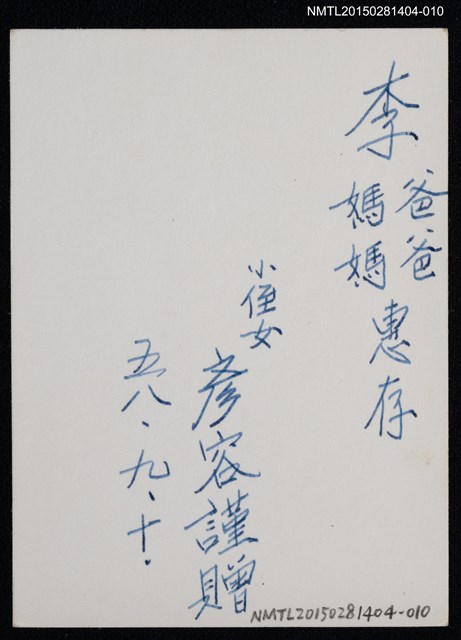 NMTL20150281404-010
李爸爸
媽媽惠存
小侄女
彥容謹贈
五八、九、十.
NMTL20150281404-010